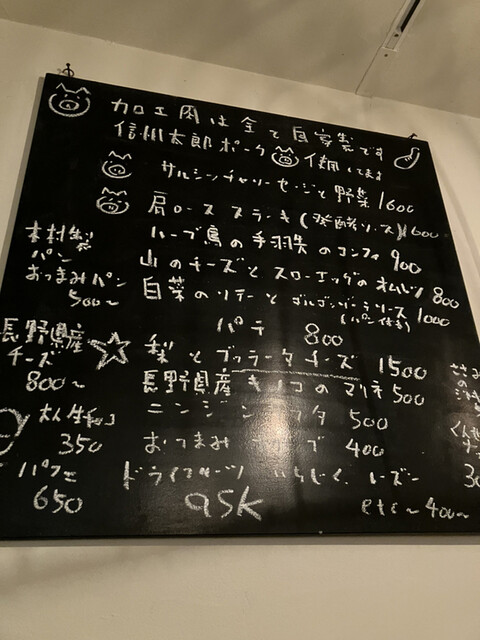 加工肉は全て自家製です
信州太郎ポーク使用してます
サルシッチャソーセージと野菜 1600
肩ロースステーキ(発酵ソース) 1600
ハーブ鳥の手羽先のコンフィ 900
山のチーズとスローエッグのオムレツ 800
白菜のソテーとゴルゴンゾーラソース 1000
(パン付き)
パテ 800
梨とブッラータチーズ 1500
長野県産キノコのマリネ 500
ニンジン 500
おつまみ 400
ドライフルーツ いちじく レーズン
ask
etc~400~
木村
パン
おつまみパン
500~
長野県産
チーズ
800~
大人生チョコ
350
パフェ
650